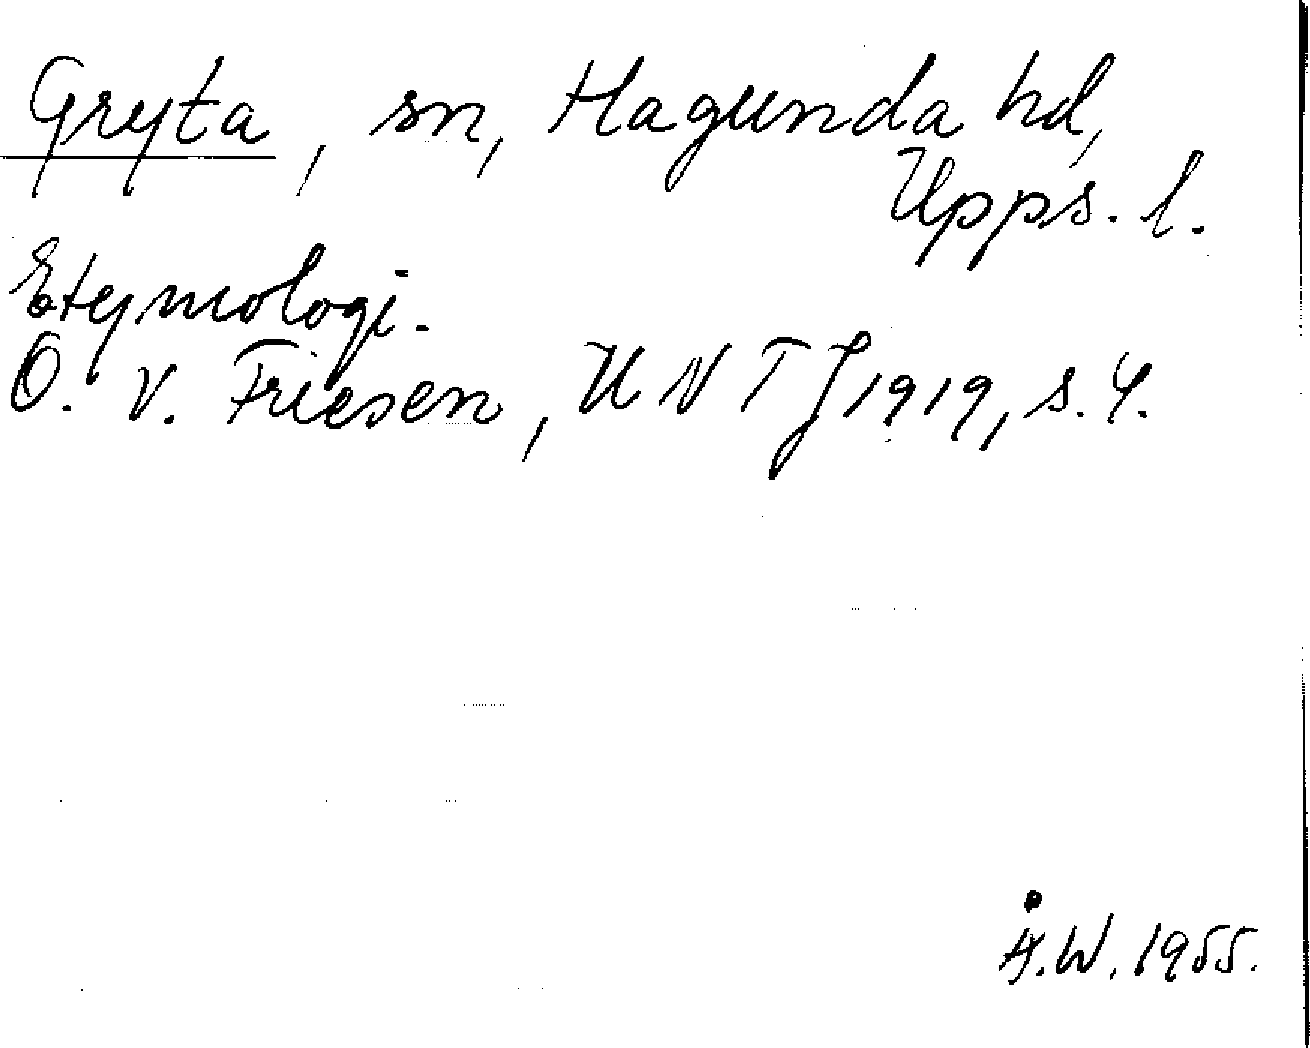 Gryta, sn, Hagunda hd,
Upps. l.
Etymologi.
O. v. Friesen, UNTJ 1919, s. 4.
Å.W. 1955.